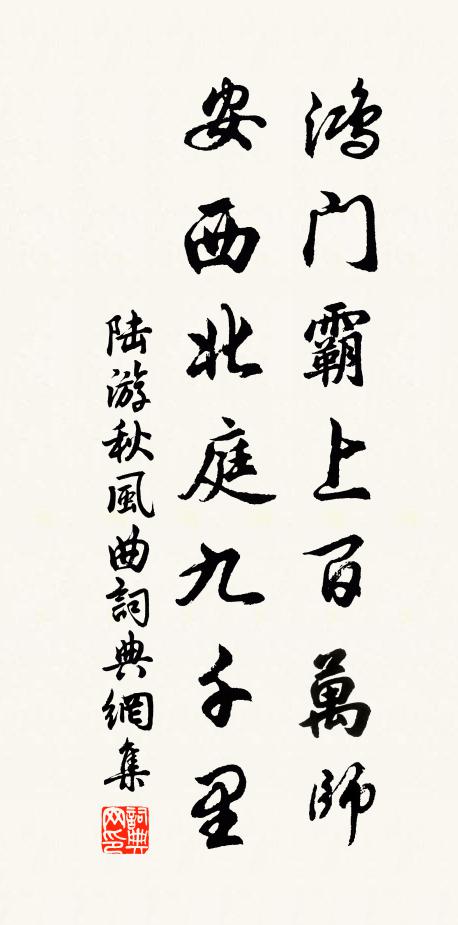 鸿门霸上百萬師
安西北庭九千里
陆游秋風曲詞典網集
詞典网印